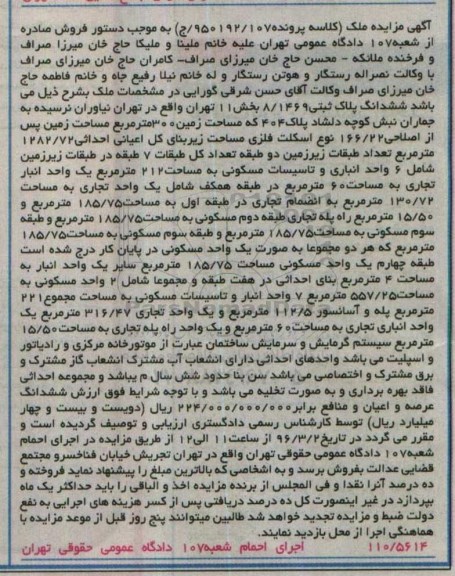 آگهی مزایده ملک (کلاسه پرونده۹۵۰۱۹۲/۱۰۷/ج) به موجب دستور فروش صادره
از شعبه۱۰۷ دادگاه عمومی تهران علیه خانم ملینا و ملیکا حاج خان میرزا صراف
و فرخنده ملائکه - محسن حاج خان میرزای صراف- کامران حاج خان میرزای صراف
با وکالت نصراله رستگار و هوتن رستگار و له خانم نیلا رفیع جاه و خانم فاطمه حاج
خان میرزای صراف وکالت آقای حسن شرقی گورایی در مشخصات ملک بشرح ذیل می
باشد ششدانگ پلاک ثبتی۸/۱۴۶۹ بخش۱۱ تهران واقع در تهران نیاوران نرسیده به
جماران نبش کوچه دلشاد پلاک۴۰۴ که مساحت زمین۳۰۰مترمربع مساحت زمین پس
از اصلاحی۱۶۶/۲۲ نوع اسکلت فلزی مساحت زیربنای کل اعیانی احداثی۱۲۸۲/۷۲
مترمربع تعداد طبقات زیرزمین دو طبقه تعداد کل طبقات ۷ طبقه در طبقات زیرزمین
شامل ۶ واحد انباری و تاسیسات مسکونی به مساحت۲۱۲ مترمربع یک واحد انبار
تجاری به مساحت۶۰ مترمربع در طبقه همکف شامل یک واحد تجاری به مساحت
۱۳۰/۷۲ مترمربع به انضمام تجاری در طبقه اول به مساحت۱۸۵/۷۵ مترمربع و
۱۵/۵۰ مترمربع راه پله تجاری طبقه دوم مسکونی به مساحت۱۸۵/۷۵مترمربع و طبقه
سوم مسکونی به مساحت۱۸۵/۷۵ مترمربع و طبقه سوم مسکونی به مساحت۱۸۵/۷۵
مترمربع که هر دو مجموعا به صورت یک واحد مسکونی در پایان کار درج شده است
طبقه چهارم یک واحد مسکونی مساحت ۱۸۵/۷۵ مترمربع سایر یک واحد انبار به
مساحت ۴ مترمربع بنای احداثی در هفت طبقه و مجموعا شامل ۲ واحد مسکونی به
مساحت۵۵۷/۲۵ مترمربع ۷ واحد انبار و تاسیسات مسکونی به مساحت مجموع۲۲۱
مترمربع پله و آسانسور ۱۱۲/۵ مترمربع و یک واحد تجاری ۳۱۶/۴۷ مترمربع یک
واحد انباری تجاری به مساحت۶۰ مترمربع و یک واحد راه پله تجاری به مساحت۱۵/۵۰
مترمربع سیستم گرمایش و سرمایش ساختمان عبارت از موتورخانه مرکزی و رادیاتور
و اسپلیت می باشد واحدهای احداثی دارای انشعاب آب مشترک انشعاب گاز مشترک و
برق مشترک و اختصاصی می باشد سن بنا حدود شش سال م یباشد و مجموعه احداثی
فاقد بهره برداری و به صورت تخلیه می باشد و با توجه شرایط فوق ارزش ششدانگ
عرصه و اعیان و منافع برابر۲۲۴/۰۰۰/۰۰۰/۰۰۰ ریال (دویست و بیست و چهار
میلیارد ریال) توسط کارشناس رسمی دادگستری ارزیابی و توصیف گردیده است و
مقرر می گردد در تاریخ۹۶/۳/۲ از ساعت۱۱ الی۱۲ از طریق مزایده در اجرای احمام
شعبه۱۰۷ دادگاه عمومی حقوقی تهران واقع در تهران تجریش خیابان فناخسرو مجتمع
قضایی عدالت بفروش برسد و به اشخاصی که بالاترین مبلغ را پیشنهاد نماید فروخته و
ده درصد آنرا نقدا و فی المجلس از برنده مزایده اخذ و الباقی را باید حداکثر یک ماه
بپردازد در غیر اینصورت کل ده درصد دریافتی پس از کسر هزینه های اجرایی به نفع
دولت ضبط و مزایده تجدید خواهد شد طالبین میتوانند پنج روز قبل از موعد مزایده با
هماهنگی اجرا از محل بازدید نمایند.
۱۱۰/۵۶۱۴ اجرای احمام شعبه۱۰۷ دادگاه عمومی حقوقی تهران